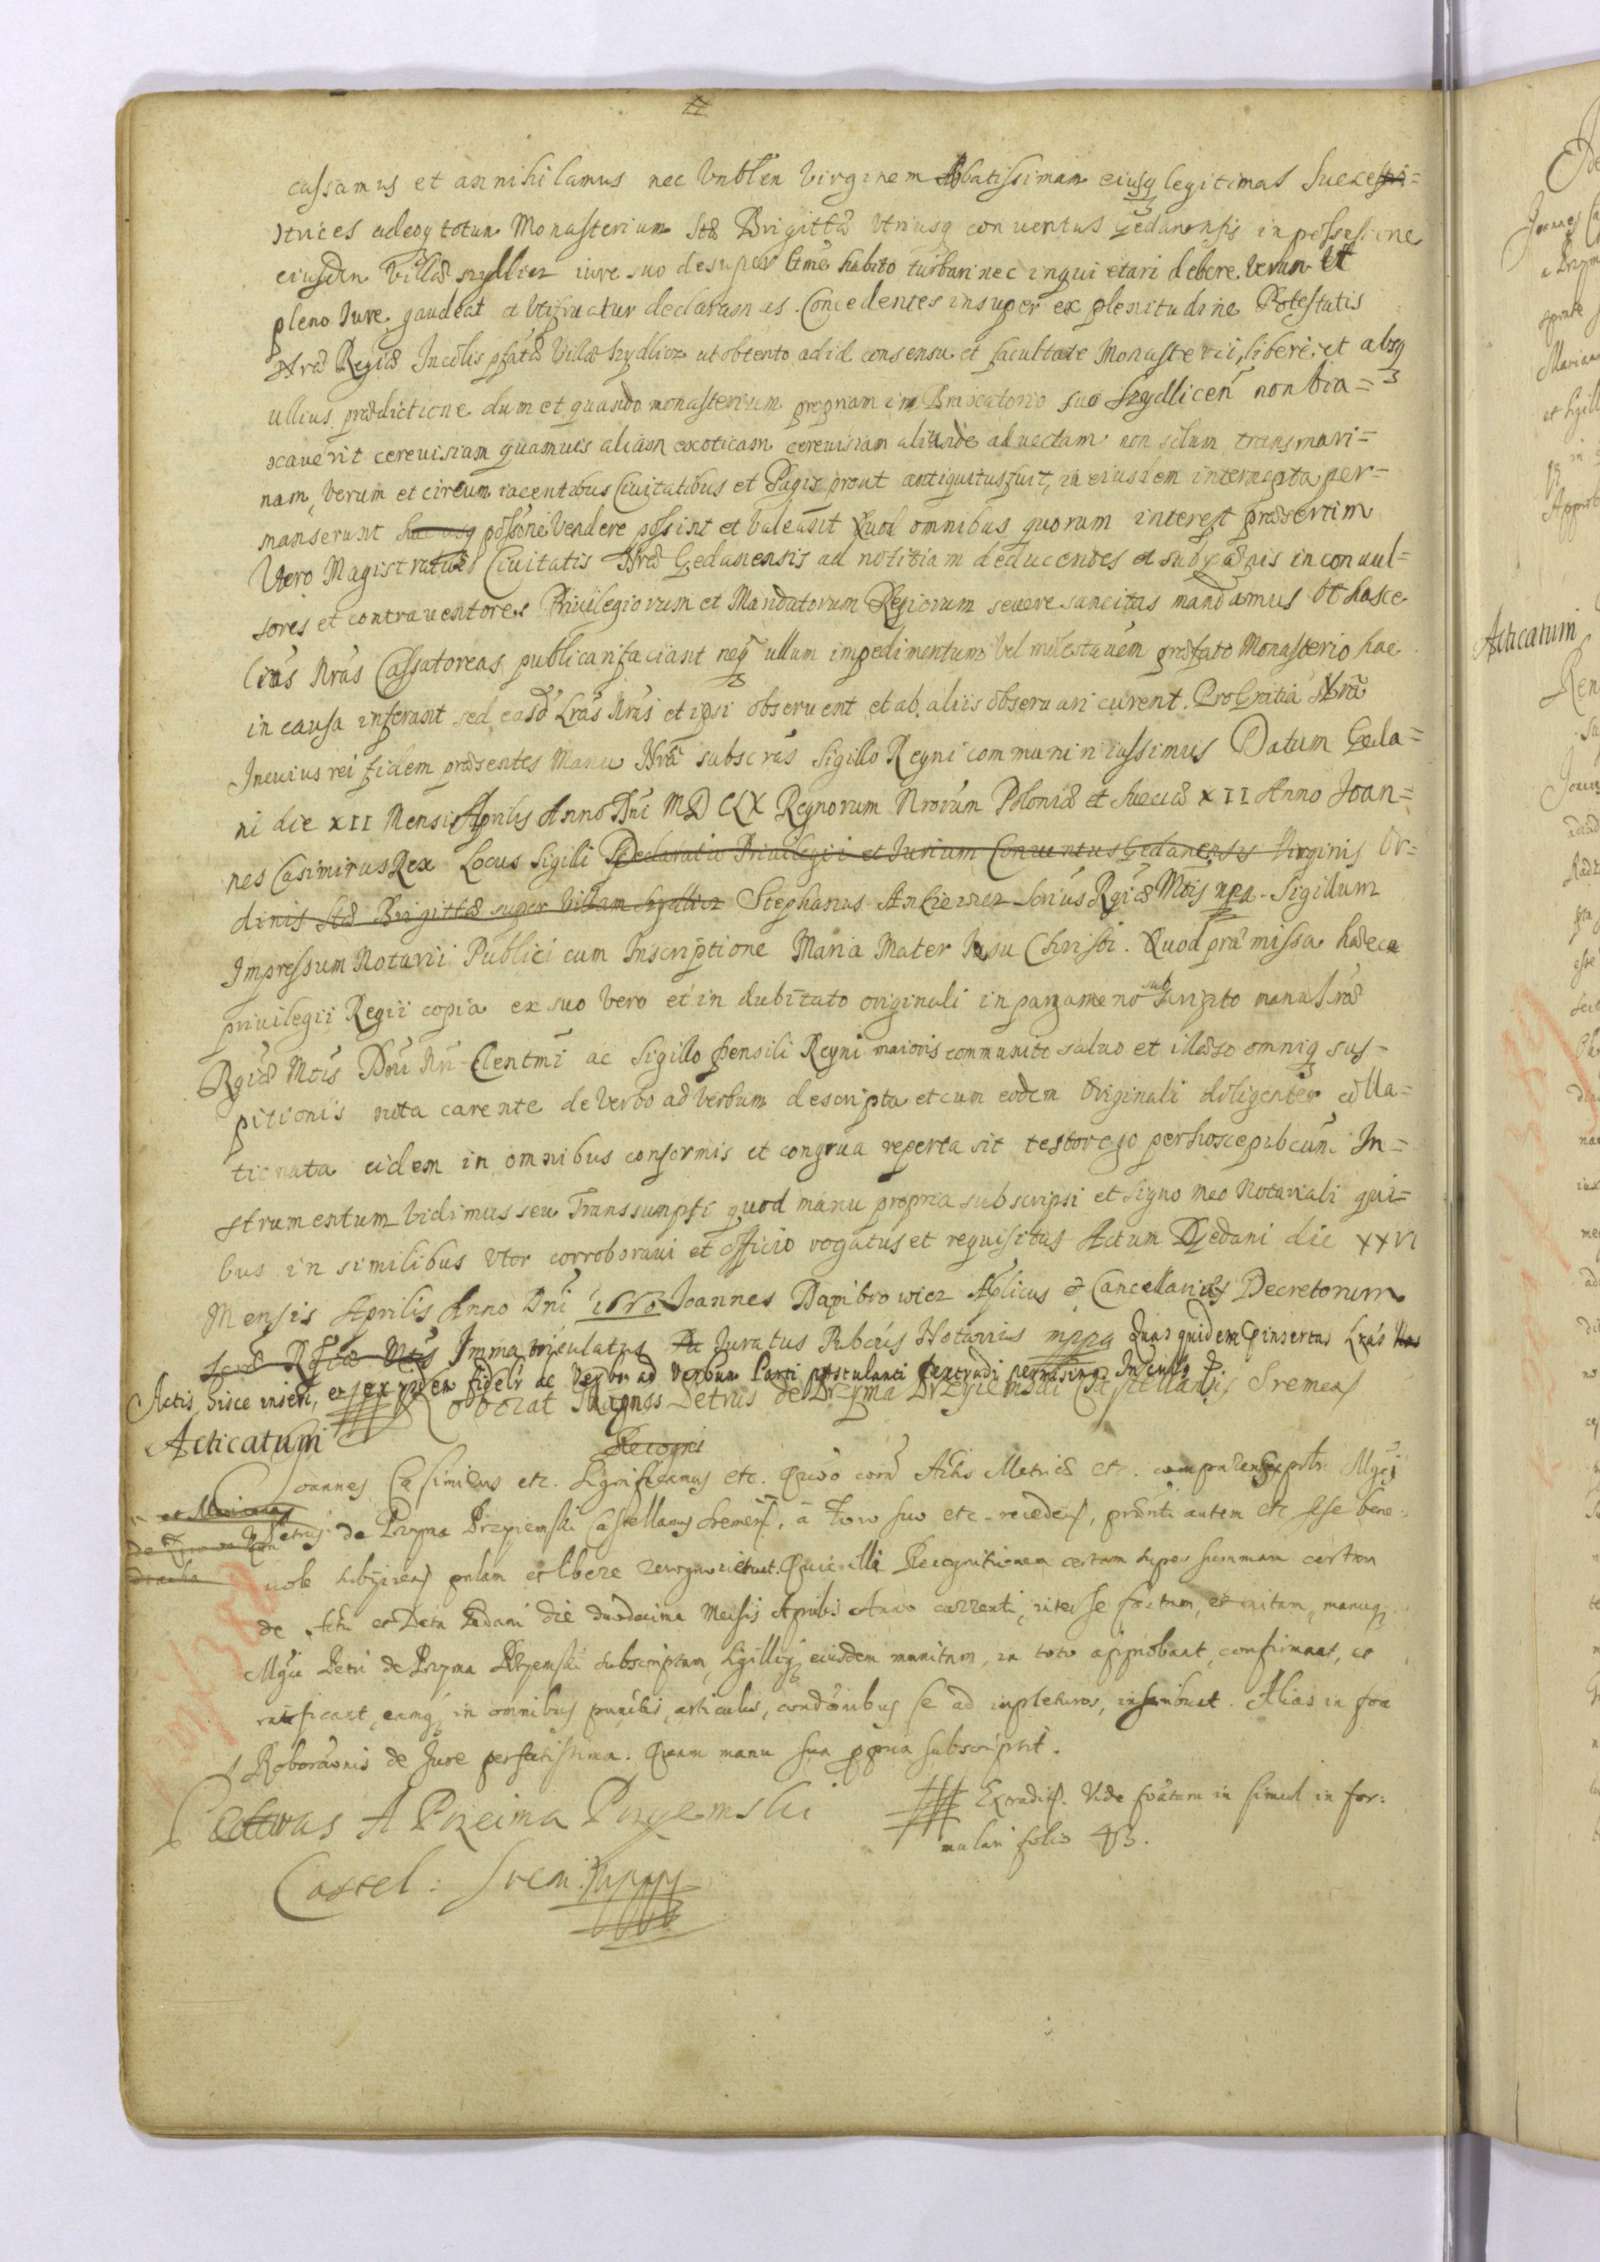 cassamus et annihilamus nec Vnblem Virginem Abbatissimam eiusq legitimas Sucess=
strices adeoq totum Monasterium Stæ Brigittæ Vtriusq conuentus Gedanensis in possessione
eiusdem Villæ Szydlicz iure suo desuper ltme habito turbari nec inquietari debere. Verum Et
pleno Iure gaudeat et Vtifruatur declaramus. Concedentes insuper ex plenitudine Potestatis
Nræ Regiæ Incolis pfatæ Villæ Szydlicz ut obtento ad id consensu et facultate Monasterii, libere et absq
ullius prædictione dum et quando monasterium propriam in Braxatorio suo Szydlicen non bra=
xauerit cereuisiam quamuis aliam exoticam cereuisiam aliunde aduectam non solum transmari=
nam, Verum et circum iacentibus Ciuitatibus et Pagis prout antiquitus fuit, in eiusdem intercepta per=
manserunt hac usq possone Vendere possint et Valeant Quod omnibus quorum interest præsertim
Vero Magistratui Ciuitatis Nræ Gedanensis ad notitiam deducentes et sub pænis in conuul=
sores et contrauentores Priuilegiorum et Mandatorum Regiorum seuere sancitas mandamus Vt hasce
Lras Nras Cassatoreas publicari faciant neq ullum impedimentum Vel molestauem præfato Monasterio hac
in causa inferant sed easd Lras Nras et ipsi obseruent et ab aliis obseruari curent. Pro Gratia Nra
In cuius rei fidem præsentes Manu Nra subscras Sigillo Regni communiri iussimus Datum Geda=
ni die XII Mensis Aprilis Anno Dni MDCLX Regnorum Nrorum Poloniæ et Sueciæ XII Anno Joan=
nes Casimirus Rex Locus Sigili Declaratio Priuilegii et Iurium Conuentus Gedanensis Virginis Or=
dinis Stæ Brigittæ super Villam Szydlicz Stephanus Srius Rgiæ Mtis mpa. Sigillum
Impressum Notarii Publici cum Inscriptione Maria Mater Iesu Christi. Quod præmissa hæcce
priuilegii Regii copia ex suo Vero et indubitato originali in pargameno subscripto manu Sræ
Rgiæ Mtis Dni Nri Clentmi ac Sigillo pensili Regni maioris communito saluo et illæso omniq sus=
pitionis nota carente de Verbo ad Verbum descripta et cum eodem Originali diligenter colla=
tionata eidem in omnibus conformis et congrua reperta sit testor ego per hosce pubcum In=
strumentum Vidimus seu Transsumpti quod manu propria subscripsi et Signo meo Notariali qui=
bus in similibus Vtor corroboraui et officio rogatus et requisitus Actum Gedani die XXVI
Mensis Aprilis Anno Dni 1660 Joannes Dambrowicz Aplicus & Cancellariæ Decretorum
Sacræ Rgiæ Mtis Immatriculatus Iuratus Pubcus Notarius mppa Quas quidem pinsertas Lras
Actis hisce inseri, et ex fideli ac Verbo ad Verbum Parti postulanti extradi permisimus. In cuius &
Roborat Magnus Petrus de Przyma Przyiemski Castellanus Sremens
Acticatum
Recogni
Joannes Casimirus etc. Significamus etc. Quod coram Actis Metrices etc. comparens psr Mgci
et Mariana
Petrus de Przyma Przyiemski Castellanus Sremens, a foro suo etc. recedens, prænti autem etc sese bene-
uole subijciens palam et libere recognouit. Quia illi Recognitionem certam super summam certam
de Actu et Data Gedani die duodecima Mensis Aprilis Anno currenti, inter se factam, et initam, manuq
Mgci Petri de Przyma Przyiemski subscriptam, Sigilloq eiusdem munitam, in toto approbant, confirmant, et
ratificant, eamq in omnibus punctis, articulis, condonibus se ad implehuros, inscribunt. Alias in foa
Roboraonis de Jure perfectissima. Quam manu sua ppria subscripsit.
Petrus A Przeima Przyemski
Castel: Srem: mppp
Extradit. Vide foatam in simul in for:
mulari folio 43.